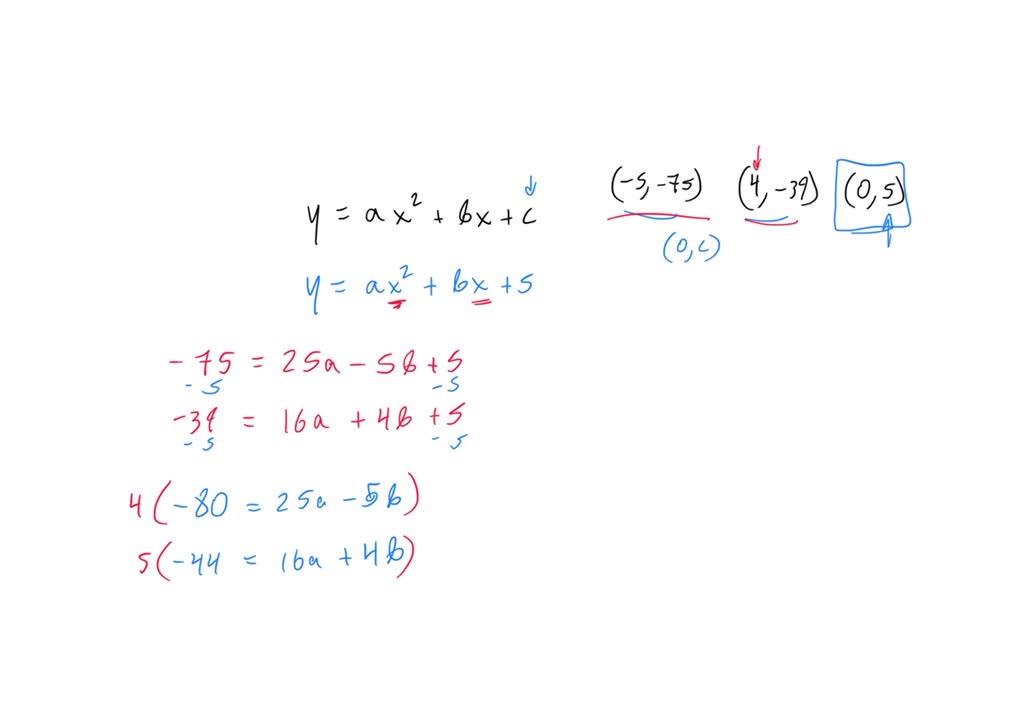 (-5, -75) (4, -39) (0, 5)
y = ax² + bx + c
(0, c)
y = ax² + bx + 5
-75 = 25a - 5b + 5
-5 -5
-39 = 16a + 4b + 5
-5 -5
4(-80 = 25a - 5b)
5(-44 = 16a + 4b)